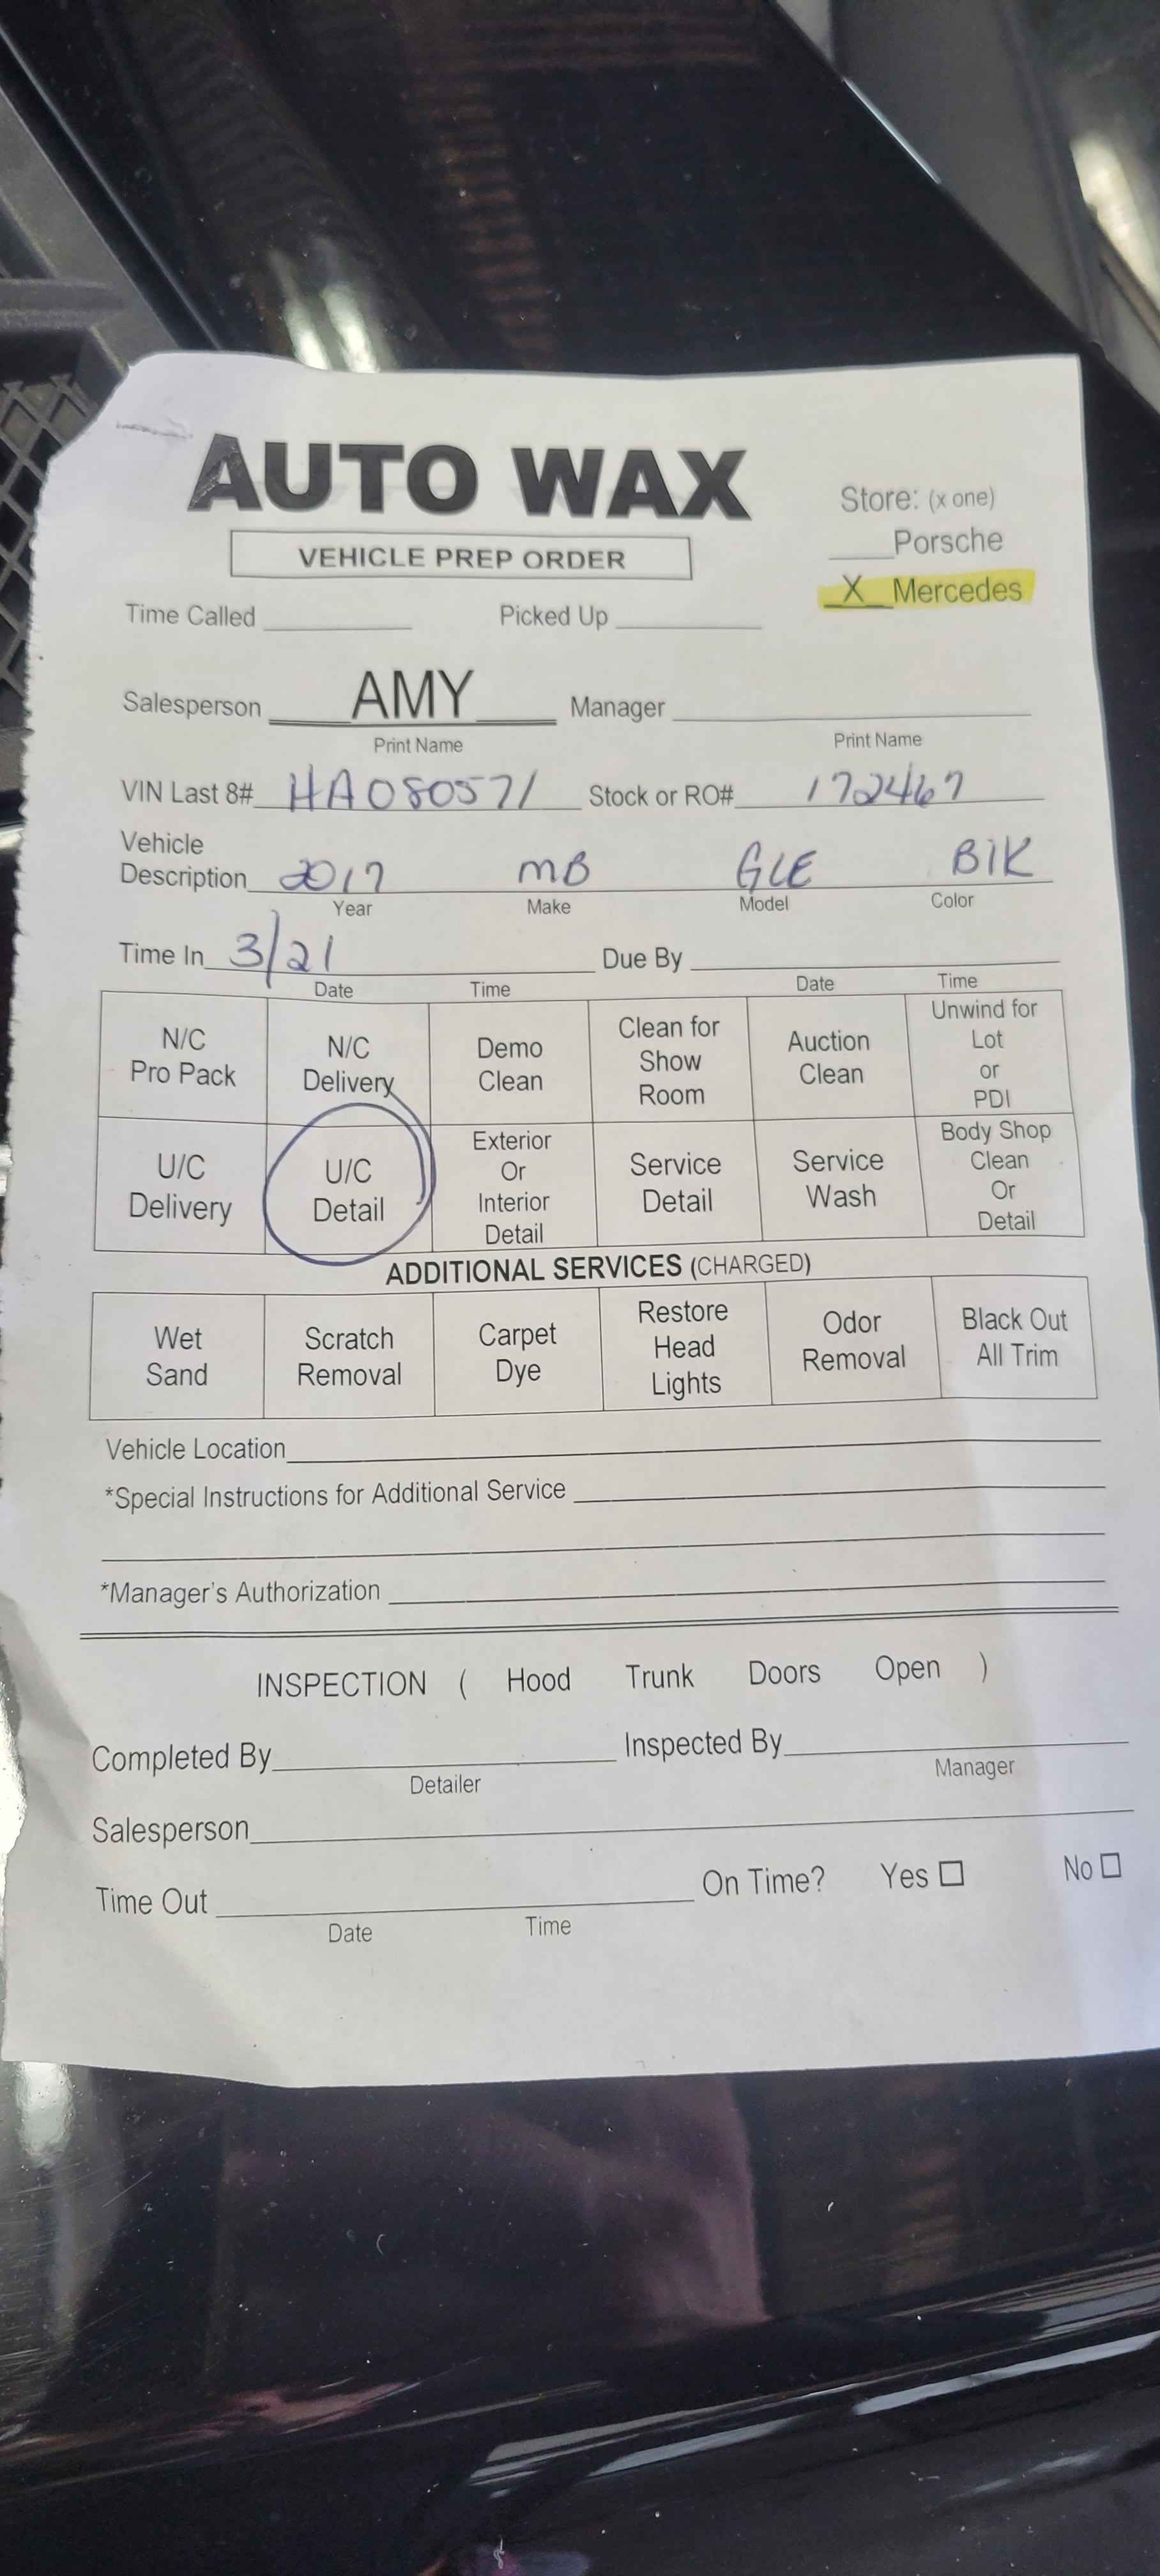 AUTO WAX
Store: (x one)
VEHICLE PREP ORDER
____Porsche
_X_ Mercedes
Time Called __________ Picked Up __________
Salesperson ____AMY____ Manager ____________________
Print Name Print Name
VIN Last 8# HA080571 Stock or RO# 172467
Vehicle
Description 2017 MB GLE BlK
Year Make Model Color
Time In 3/21 Due By ____________________
Date Time Date Time
N/C Pro Pack
N/C Delivery
Demo Clean
Clean for Show Room
Auction Clean
Unwind for Lot or PDI
U/C Delivery
U/C Detail
Exterior Or Interior Detail
Service Detail
Service Wash
Body Shop Clean Or Detail
ADDITIONAL SERVICES (CHARGED)
Wet Sand
Scratch Removal
Carpet Dye
Restore Head Lights
Odor Removal
Black Out All Trim
Vehicle Location____________________
*Special Instructions for Additional Service ____________________
*Manager's Authorization ____________________
INSPECTION ( Hood Trunk Doors Open )
Completed By____________________ Inspected By____________________
Detailer Manager
Salesperson____________________
Time Out ____________________ On Time? Yes ☐ No ☐
Date Time